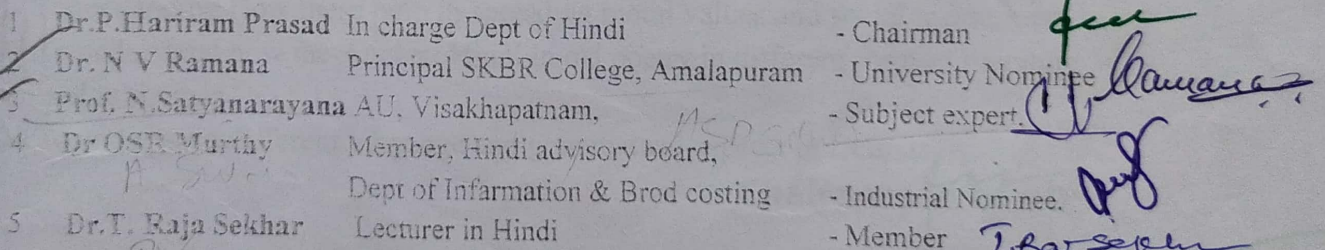 1 Dr.P.Hariram Prasad In charge Dept of Hindi - Chairman
2 Dr. N V Ramana Principal SKBR College, Amalapuram - University Nominee Ramana
3 Prof. N.Satyanarayana AU, Visakhapatnam, - Subject expert.
4 Dr OSR Murthy Member, Hindi advisory board,
Dept of Infarmation & Brod costing - Industrial Nominee.
5 Dr.T. Raja Sekhar Lecturer in Hindi - Member T. Raj Sekhar